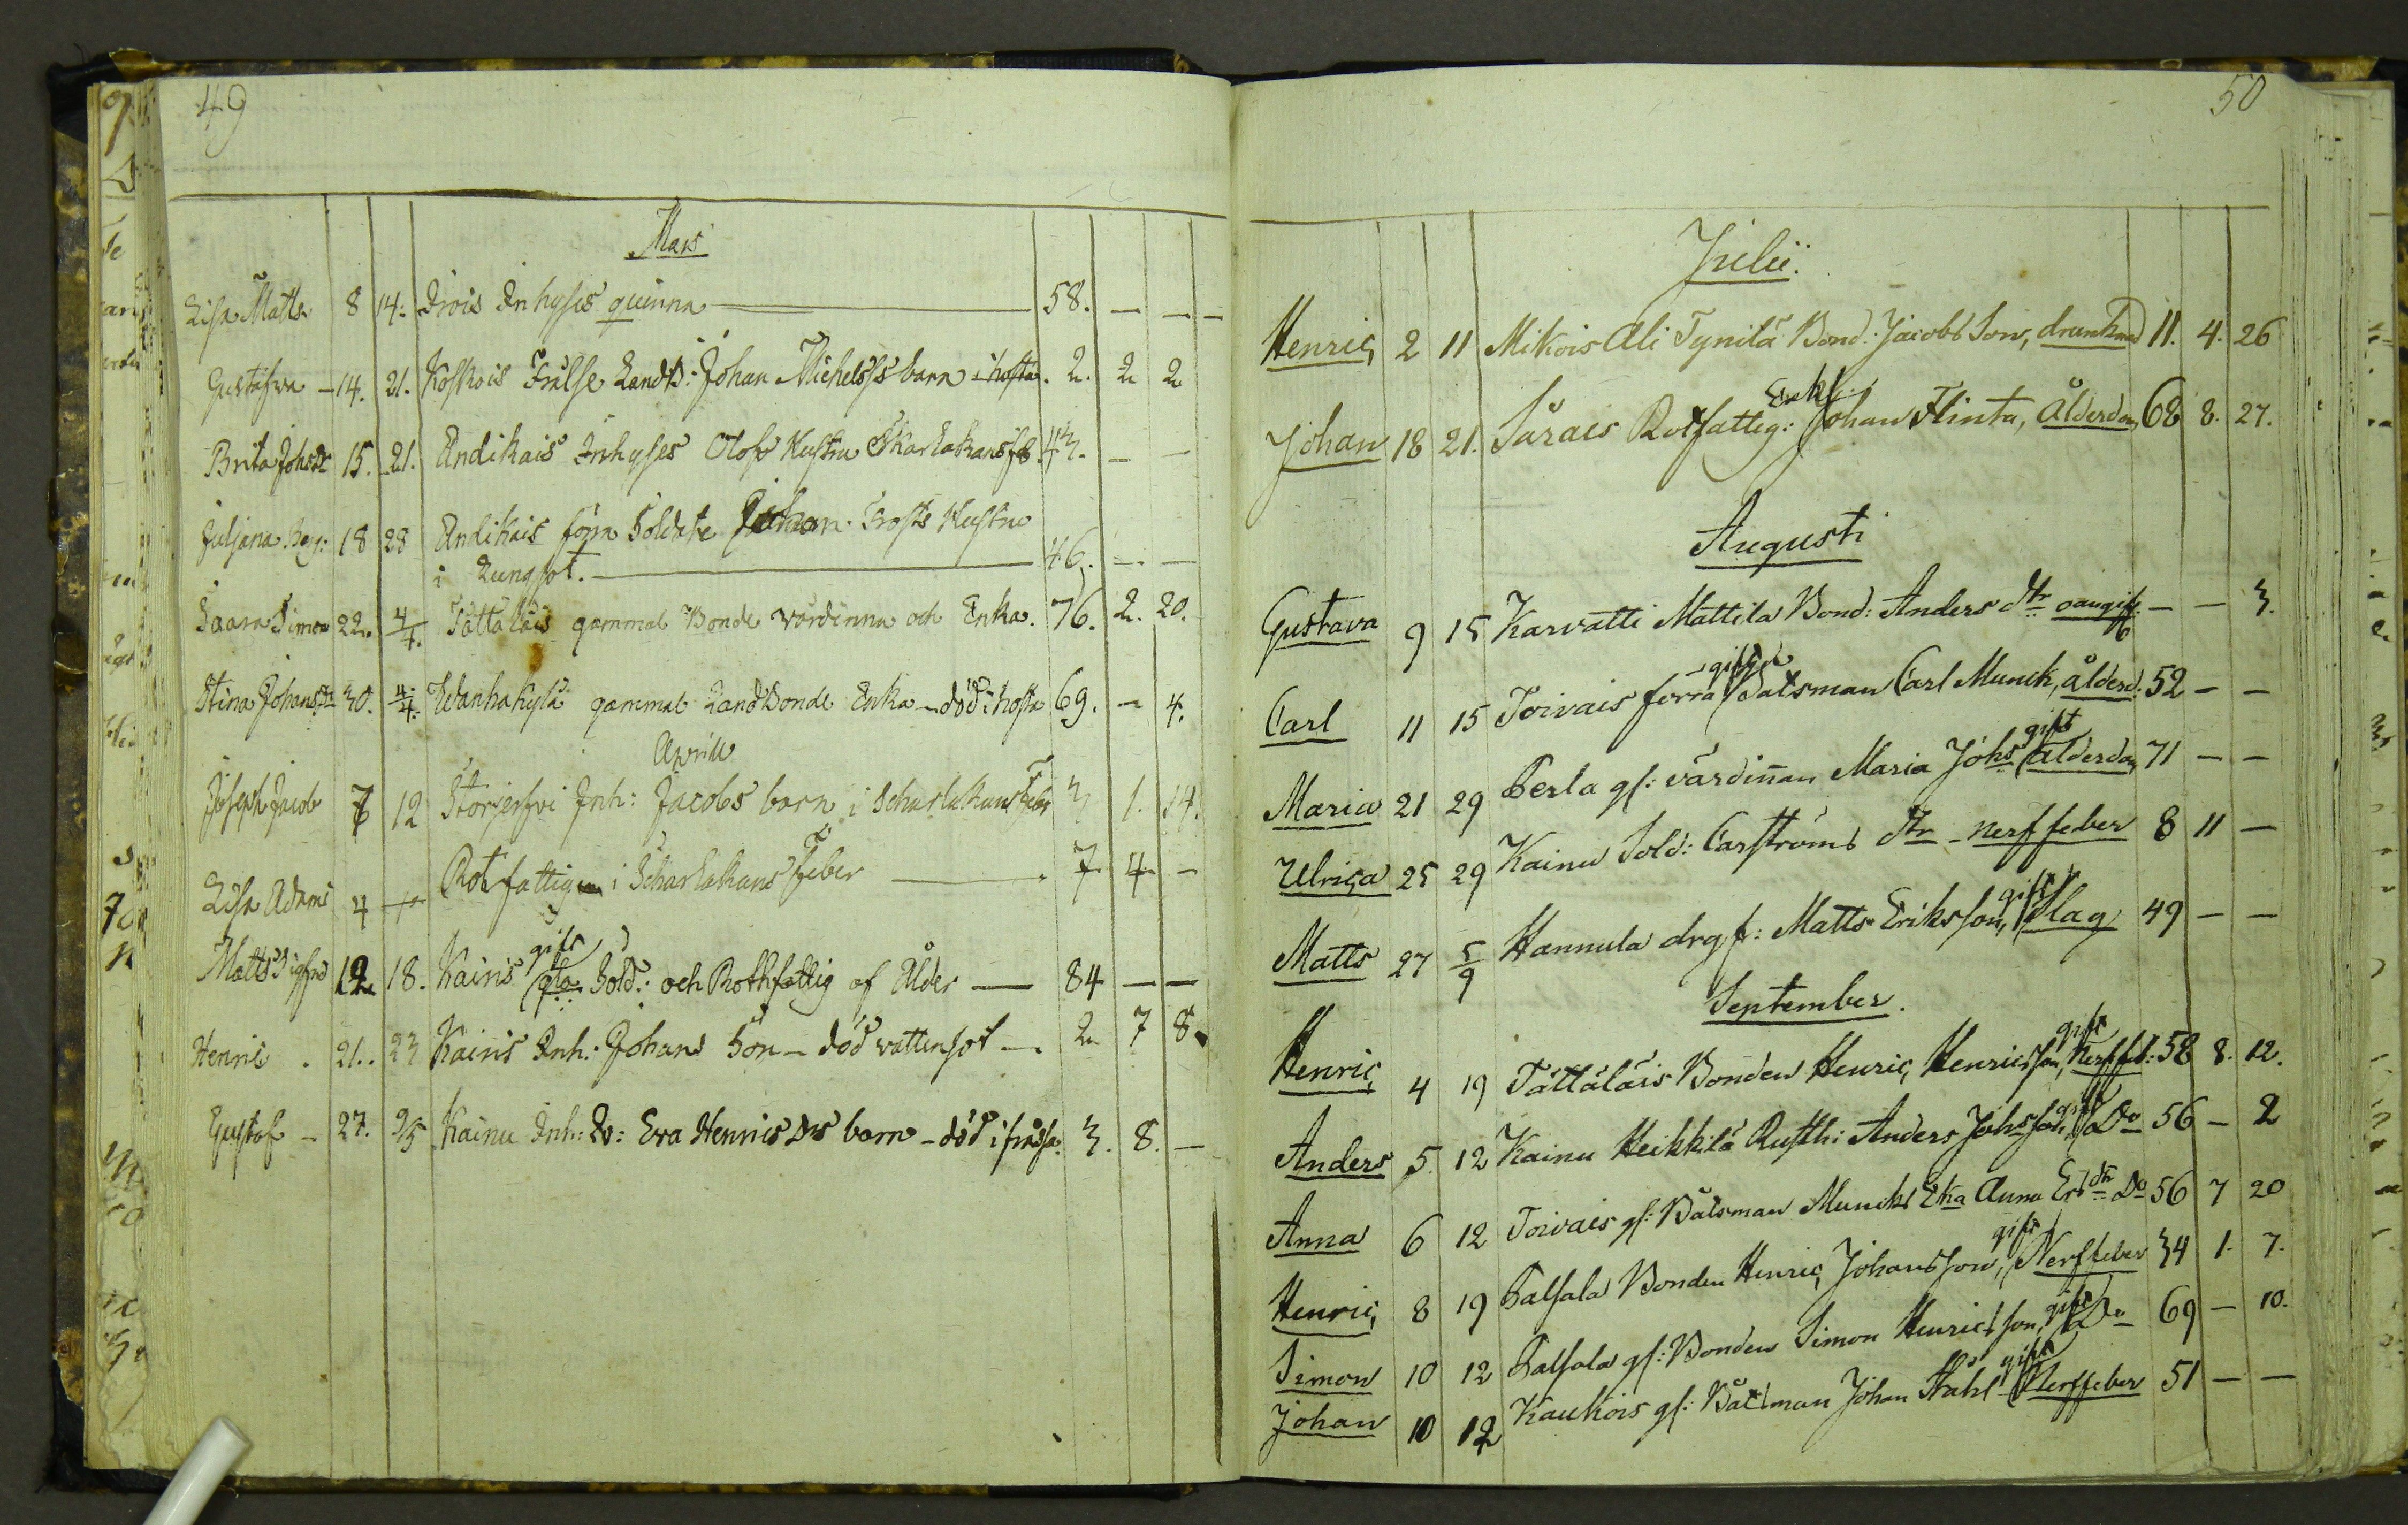 49
Mars
Lisa Matts 8 14. Irois Inhyses quinna 58. — — —
Gustafva — 14. 21. Koskois Frälse LandB: Johan Michelss barn i hosta. 2. 2 2
Brita Johsdr 15. 21. Andikais Inhyses Olofs Hustru Skarlakansfeb. 43. — —
Juljana 18 28 Andikais förra Soldate Johan Frosts Hustru
i Lungsot. 46. — —
Saara Simon 22. 4/4. Tättäläis gammal Bonde värdinna och Enka. 76. 2. 20.
Stina Johansdr 30. 4/4. Wanhakylä gammal Landbonde Enka — död i hosta 69. — 4.
Aprill
Joseph Jacob 7 12 Storjerfvi Inh: Jacobs barn i Scharlakans Feber 3 1. 14.
Lisa Adams 4 — Rotefattigen i Scharlakans Feber 7 4 —
gift
Matts Sigfrid 12 18. Kairis gla Sold: och Rothfattig af Ålder — 84 — —
Henric . 21.. 23 Kairis Inh: Johans Son — död vattensot — 2 7 8.
Gustaf — 27. 9/5 Kainu Inh: Eva Henrics Drs barn — död i frossa. 3. 8. —
50
Julii.
Henric 2 11 Mikois Ali Tynilä Bond: Jacobs Son, drunknad 11. 4. 26
Enkl:
Johan 18 21. Säräis Rotfattig: Johan Flinta, Ålderdom 68 8. 27.
Augusti
Gustava 9 15 Karvatti Mattila Bond: Anders dtr oangift. — — 3.
gift
Carl 11 15 Toivais förra Båtsman Carl Munck, ålderd. 52 — —
gift
Maria 21 29 Perla gl: värdinan Maria Johs Ålderdom 71 — —
Ulrica 25 29 Kainu Sold: Carströms dtr — nerffeber 8 11 —
gift
Matts 27 5/9 Hannula drgf: Matts Eriksson, Slag 49 — —
September.
gift
Henric 4 19 Tättäläis Bonden Henric Henricsson, Nerffeb: 58 8. 12.
gift
Anders 5. 12 Kainu Heikkilä Rusth: Anders Johsson, Do 56 — 2
Anna 6 12 Toivais gl: Båtsman Muncks Eka Anna Ersdtr Do 56 7 20
gift
Henric 8 19 Palsala Bonden Henric Johansson, Nerffeber 34 1. 7.
gift
Simon 10 12 Palsala gl: Bonden Simon Henricsson, Do 69 — 10.
gift
Johan 10 12 Kaukois gl: Båtsman Johan Ståhl Nerffeber 51 — —